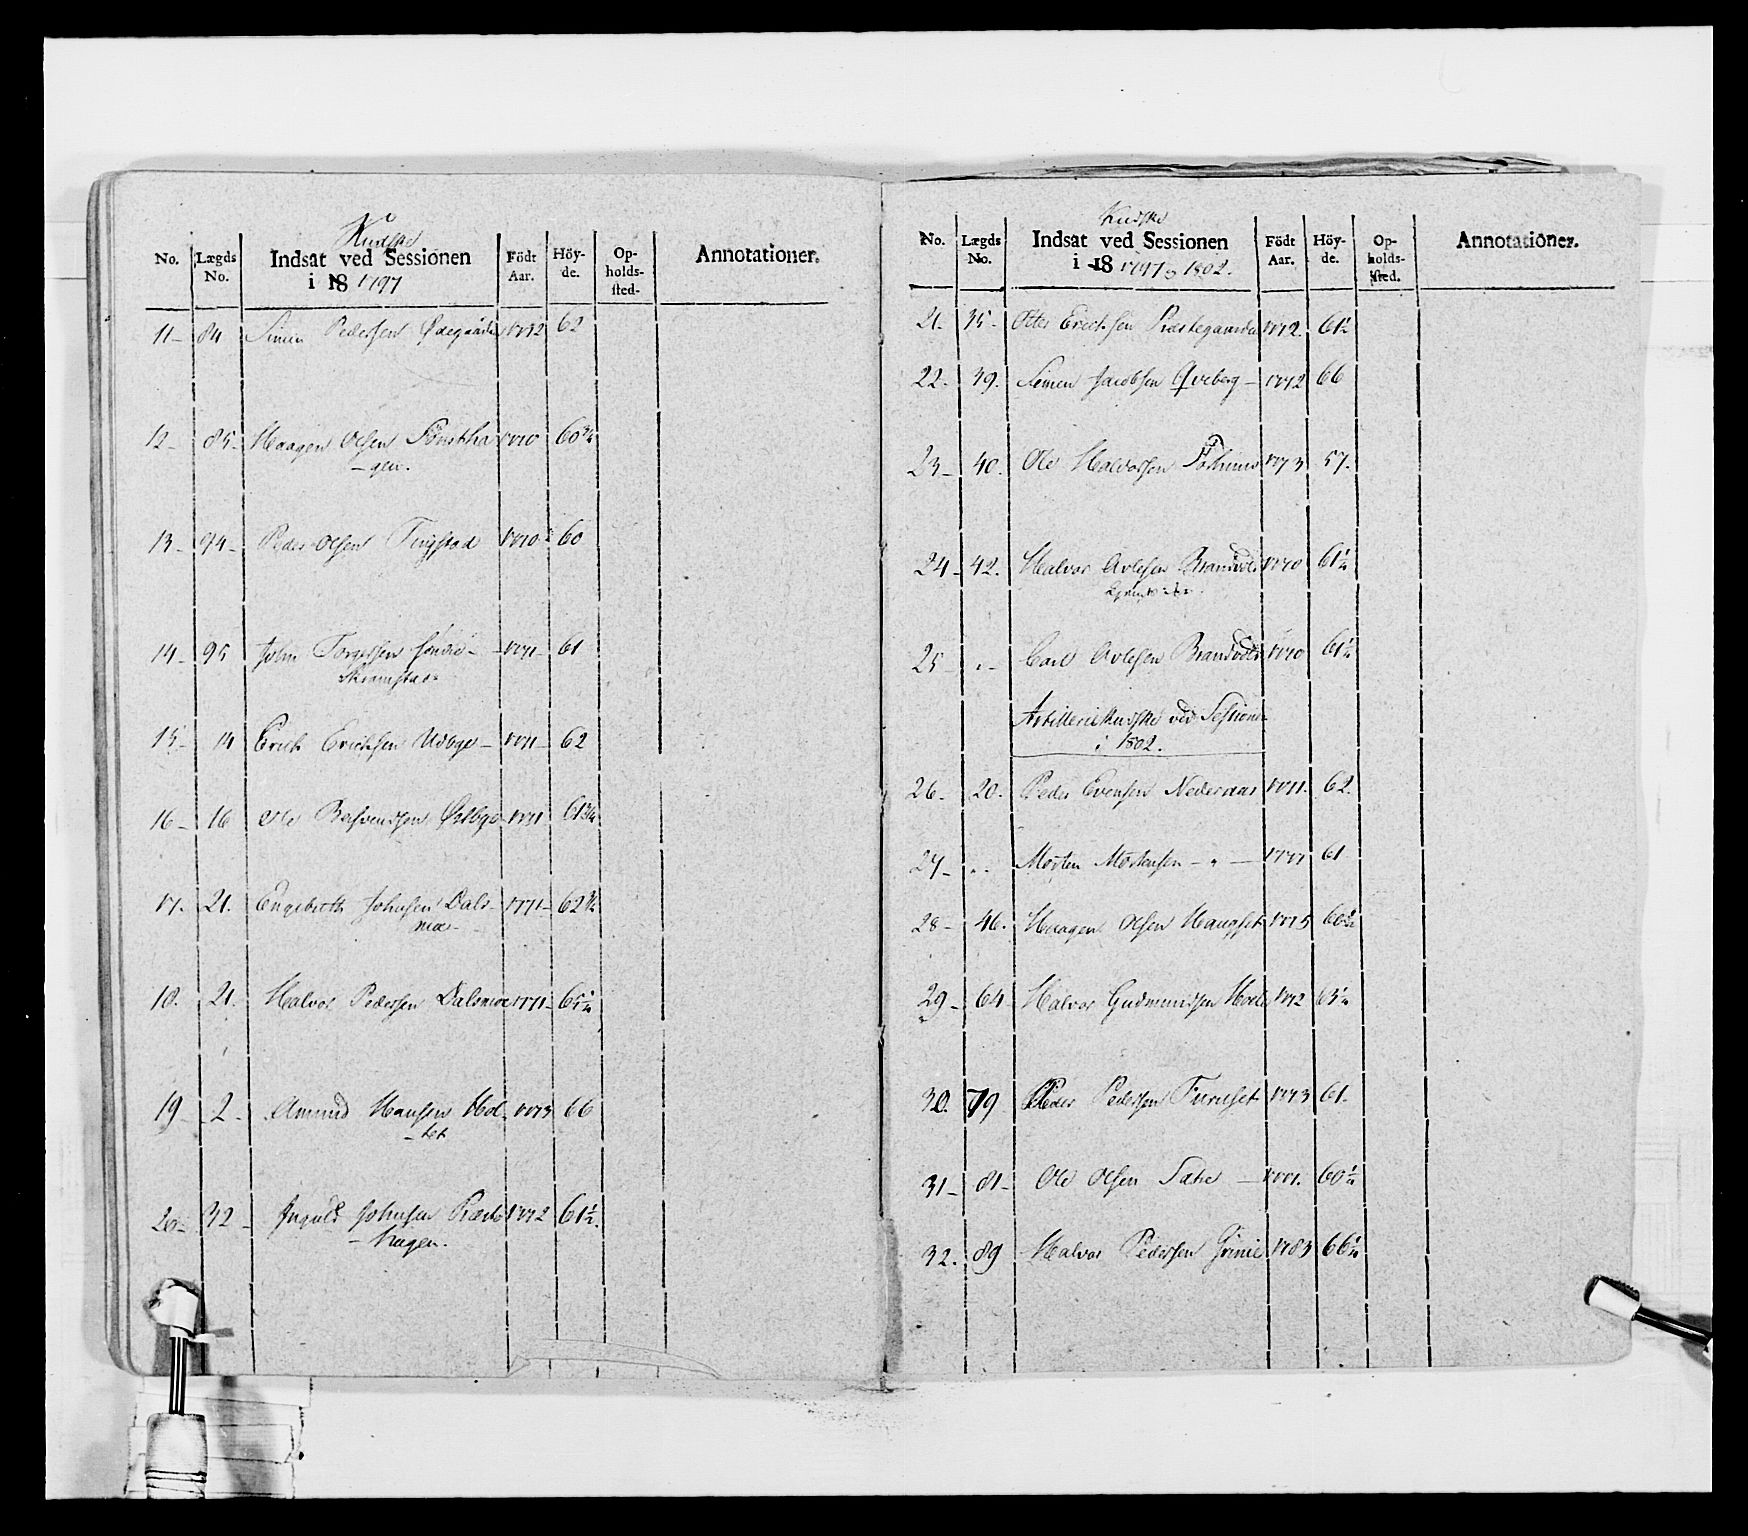 Kudske
No. Lægds No. Indsat ved Sessionen i 18 1797 Födt Aar. Höyde. Opholdssted. Annotationer.
11- 84 Simen Pedersen Ødegaarden 1772 62
12- 85- Haagen Olsen Sönstha 1770 60 3/4
-gen.
13- 94- Peder Olsen Tingstad 1770 60
14- 95 John Torgersen 1771 61
15- 14 Erich Erichsen Udbye- 1771- 62
16- 16 Ole 1771 61 3/4
17. 21. Engebreth Johnsen Dals- 1771- 62 3/4
moe-
18. 21. Halvor Pedersen Dalsmoe 1771- 65 1/2
19- 2- Amund Hansen Hol 1773 66
-tet
20- 32- Johnsen Præste 1772 61 1/2.
-hagen.
Kudske
No. Lægds No. Indsat ved Sessionen i 18 1797 og 1802. Födt Aar. Höyde. Opholdssted. Annotationer.
21- 35- Otter Erichsen Præstegaarden 1772. 61 1/2
22. 39. Simen Jacobsen Qveberg- 1772 66
23- 40. Ole Halvorsen 1773 57.
24- 42. Halvor Avlesen Brandvold 1770 61 1/2
25- „- Carl Avlesen Brandvold 1770 61 1/2
Artilleriekudske ved Sessionen
i 1802.
26- 20. Peder Evensen Nederaas 1771. 62.
27- „. Morten Mortensen - „ - 1777 61
28- 46. Haagen Olsen Haugset 1775 60 3/4
29- 64 Halvor Gudmundsen 1772 63 1/2
30. 79 Peder Pedersen Furuset 1773 61.
31- 81- Ole Olsen Sæhe - 1771. 60 1/2
32. 89 Halvor Pedersen Grinie 1783 66 1/2